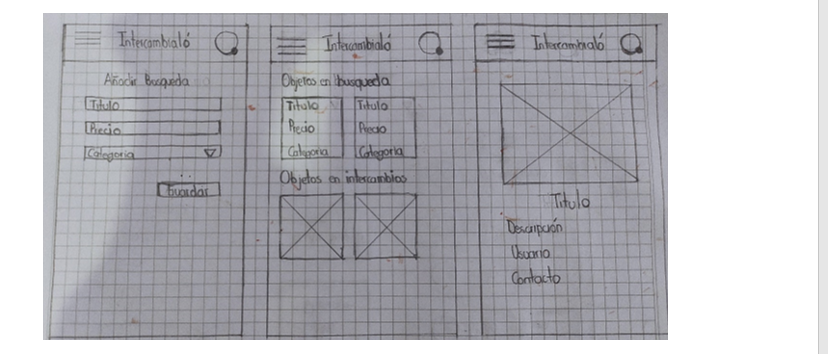 Intercambialó
Añadir Busqueda
Titulo
Precio
Categoria
Guardar
Intercambialó
Objetos en busqueda
Titulo Titulo
Precio Precio
Categoria Categoria
Objetos en intercambios
Intercambialó
Titulo
Descripción
Usuario
Contacto